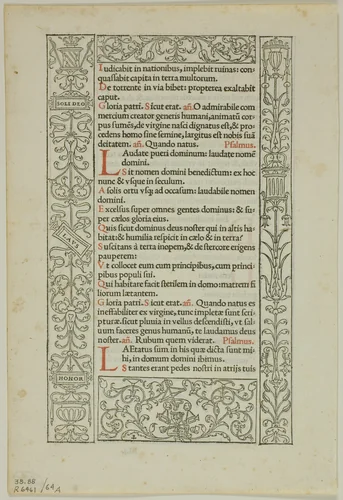 Iudicabit in nationibus, implebit ruinas: con-
quassabit capita in terra multorum.
De torrente in via bibet: propterea exaltabit
caput.
Gloria patri. Sicut erat. añ. O admirabile com
mercium creator generis humani, animatũ cor
pus sumẽs, de virgine nasci dignatus est, & pro
cedens homo sine semine, largitus est nobis suã
deitatem. añ. Quando natus. Psalmus.
LAudate pueri dominum: laudate nomẽ
domini.
Sit nomen domini benedictum: ex hoc
nunc & vsque in seculum.
A solis ortu vsq; ad occasum: laudabile nomen
domini.
Excelsus super omnes gentes dominus: & su
per cælos gloria eius.
Quis sicut dominus deus noster qui in altis ha
bitat: & humilia respicit in cælo & in terra?
Suscitans à terra inopem, & de stercore erigens
pauperem:
Vt collocet eum cum principibus, cum princi
pibus populi sui.
Qui habitare facit sterilem in domo: matrem fi
liorum lætantem.
Gloria patri. Sicut erat. añ. Quando natus es
ineffabiliter ex virgine, tunc impletæ sunt scri
pturæ. sicut pluuia in vellus descendisti, vt sal
uum faceres genus humanũ, te laudamus deus
noster. añ. Rubum quem viderat. Psalmus.
LAEtatus sum in his quæ dicta sunt mi
hi, in domum domini ibimus.
Stantes erant pedes nostri in atrijs tuis
SOLI DEO
LAVS
HONOR
38.88
R6461 / 64A